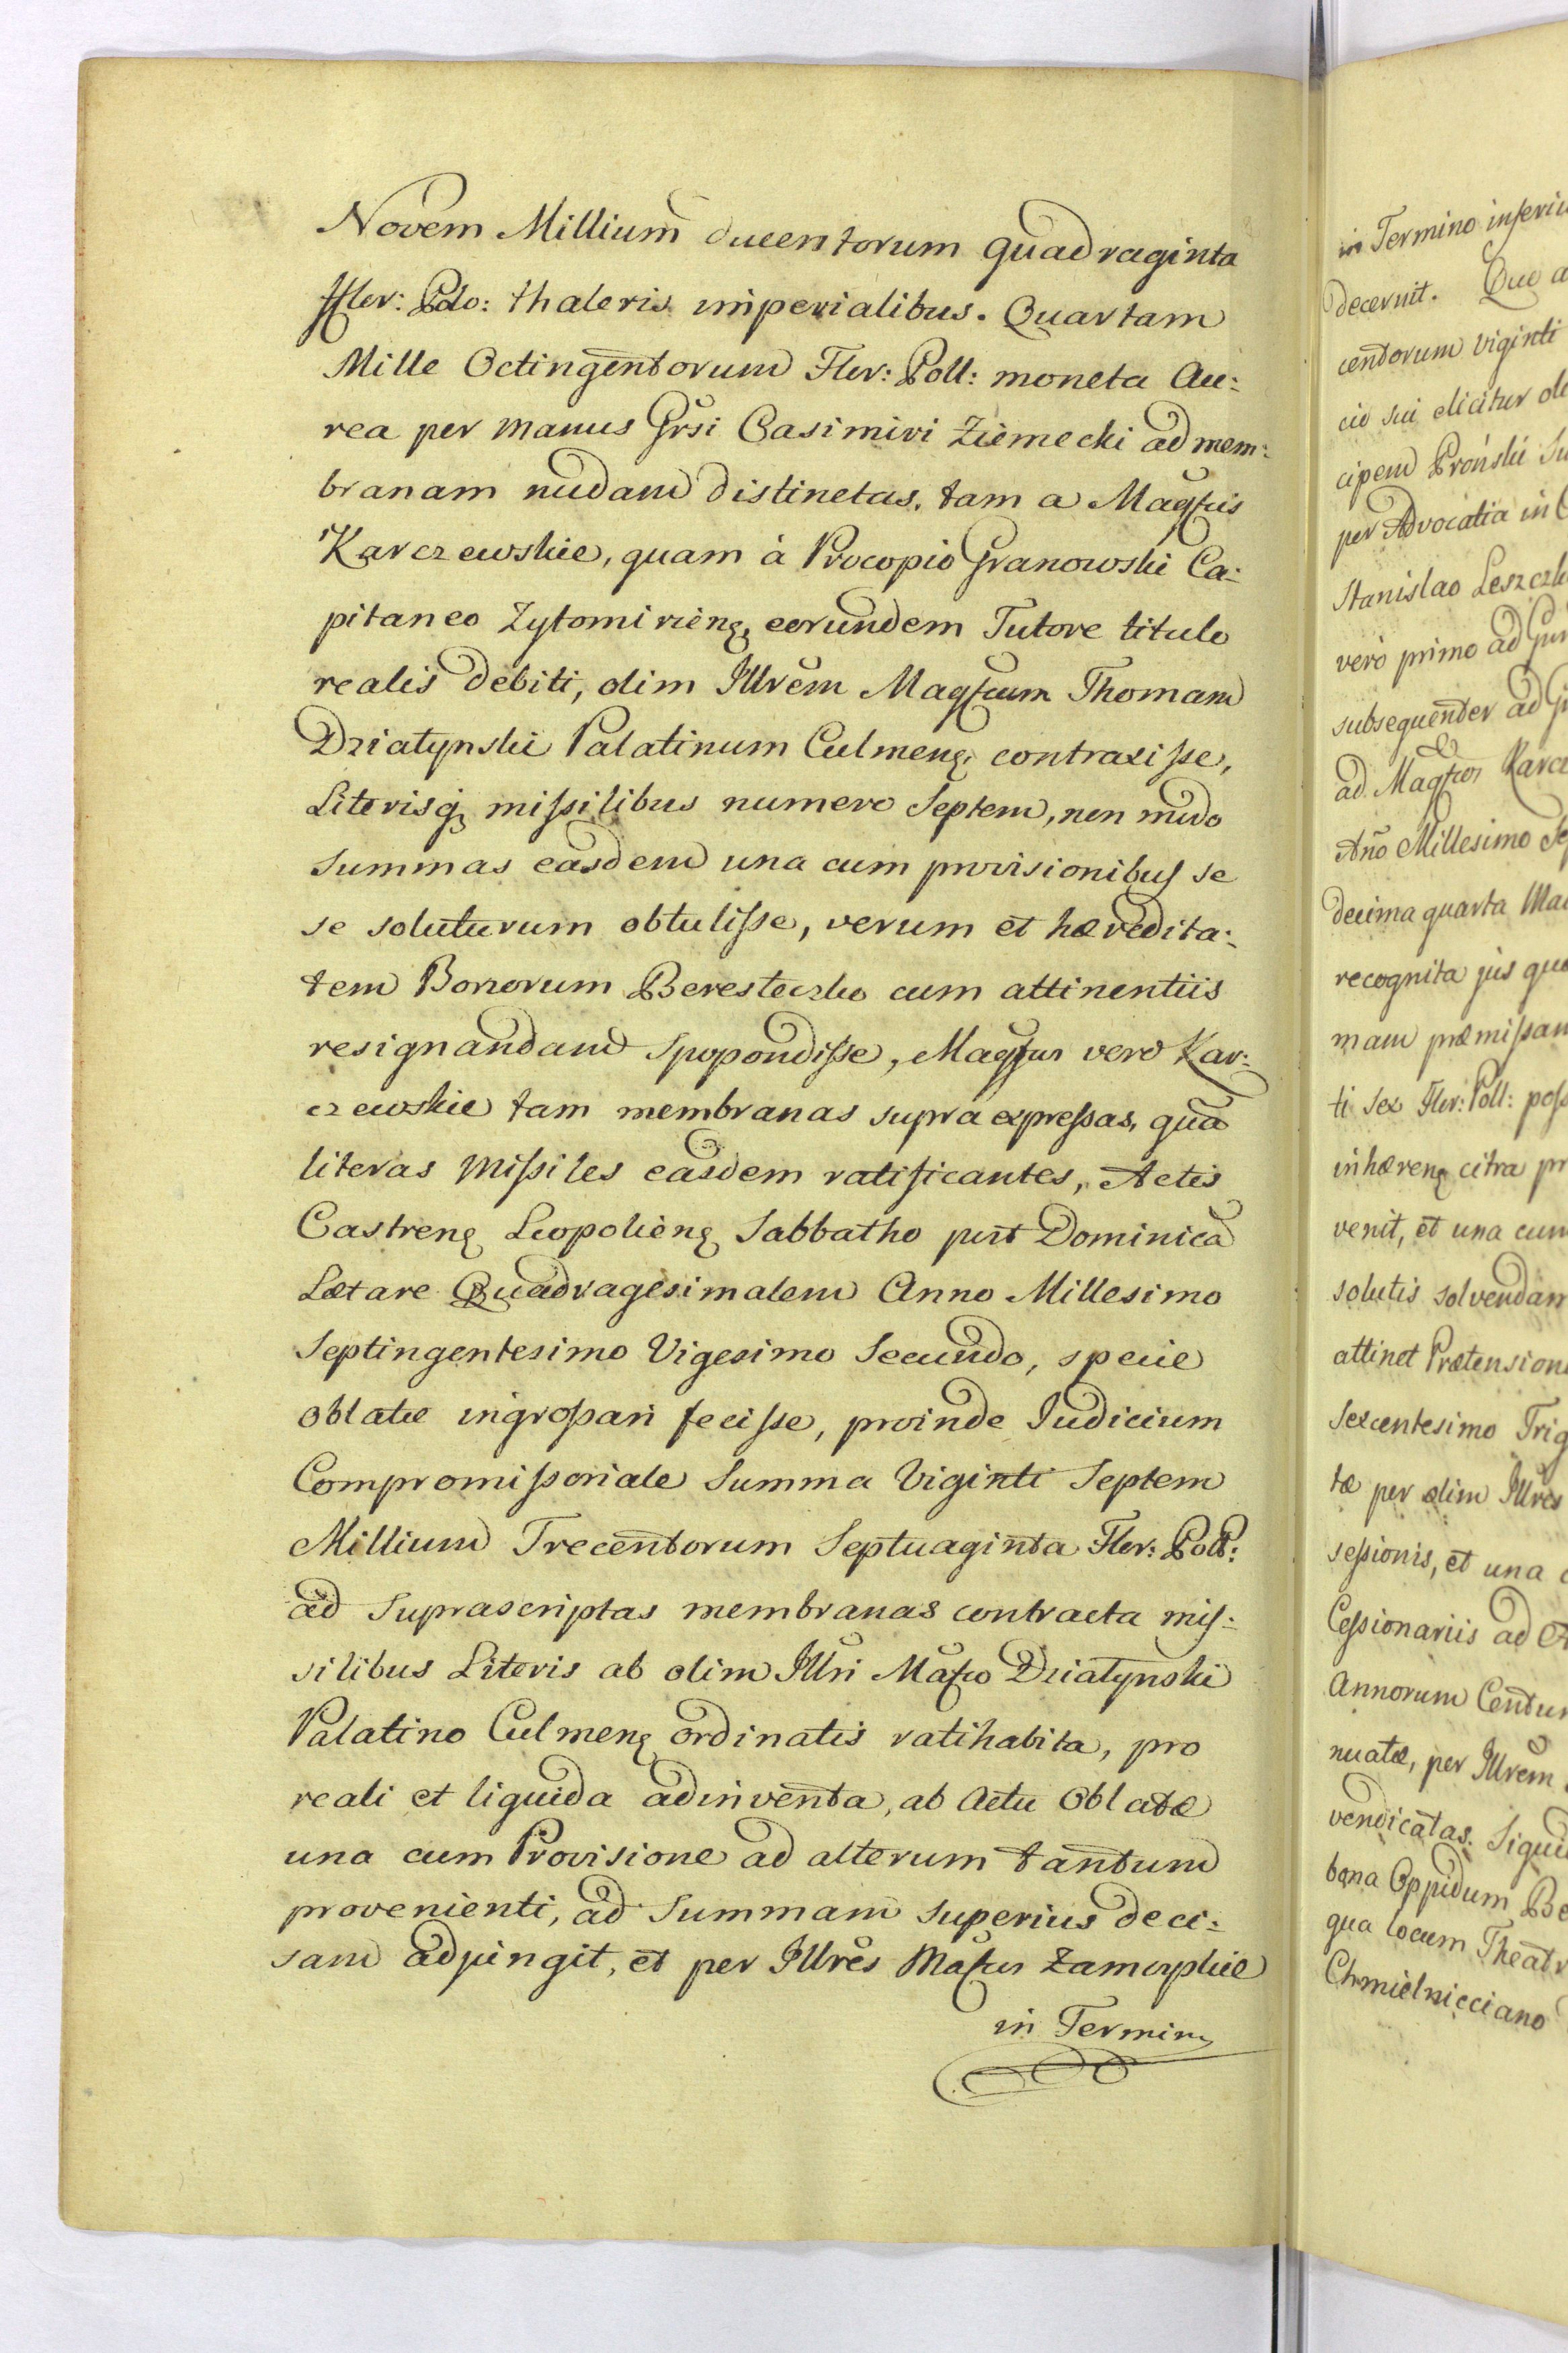 Novem Millium ducentorum quadraginta
Fler: Polo: thaleris imperialibus. Quartam
Mille Octingentorum Fler: Poll: moneta Au:
rea per manus Grsi Casimiri Ziemecki ad mem:
branam nudam distinctas, tam a Magfcis
Karczewskie, quam à Procopio Granowski Ca:
pitaneo Zytomirieng, eorundem Tutore titulo
realis debiti, olim Illrem Magfcum Thomam
Dziatynski Palatinum Culmeng, contraxisse,
Literisq; missilibus numero Septem, non mudo
Summas easdem una cum provisionibus se
se soluturum obtulisse, verum et hæredita:
tem Bonorum Beresteczko cum attinentiis
resignandam spopondisse, Magfcus vero Kar:
czewskie tam membranas supra expressas, qua
literas Missiles easdem ratificantes, Actis
Castreng Leopolieng Sabbatho post Dominica
Lætare Quadragesimalem Anno Millesimo
Septingentesimo Vigesimo Secundo, specie
Oblatæ ingrossari fecisse, proinde Iudicium
Compromissoriale Summa Viginti Septem
Millium Trecentorum Septuaginta Fler: Poll:
ad Suprascriptas membranas contracta mis:
silibus Literis ab olim Illri Mafco Dziatynski
Palatino Culmeng ordinatis ratihabita, pro
reali et liquida adinventa, ab Actu Oblatæ
una cum Provisione ad alterum tantum
provenienti, ad Summam superius deci:
sam adjungit, et per Illres Mafcos Zamoyskie
in Termino
in Termino inferiu
decernit. Quo a
centorum viginti
cio sui elicitur ol
cipem Pronski Su
per Advocatia in
Stanislao Leszczk
vero primo ad Gu
subsequenter ad G
ad Magfcos Karcz
Año Millesimo Se
decima quarta Ma
recognita jus quo
mam præmissam
ti sex Fler: Poll: poss
inhæreng citra pr
venit, et una cum
solutis solvendam
attinet Prætension
Sexcentesimo Trig
tæ per olim Illres
sessionis, et una c
Cessionariis ad A
Annorum Centum
nuatæ, per Illrem
vendicatas. Siquid
bona Oppidum Be
qua locum Theatr
Chmielnicciano